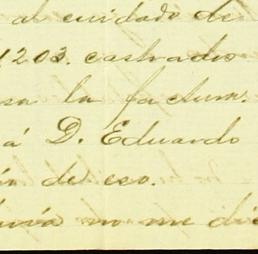 al cuidado de
1203. castrado
la factura.
á D. Eduardo
de eso.
no me